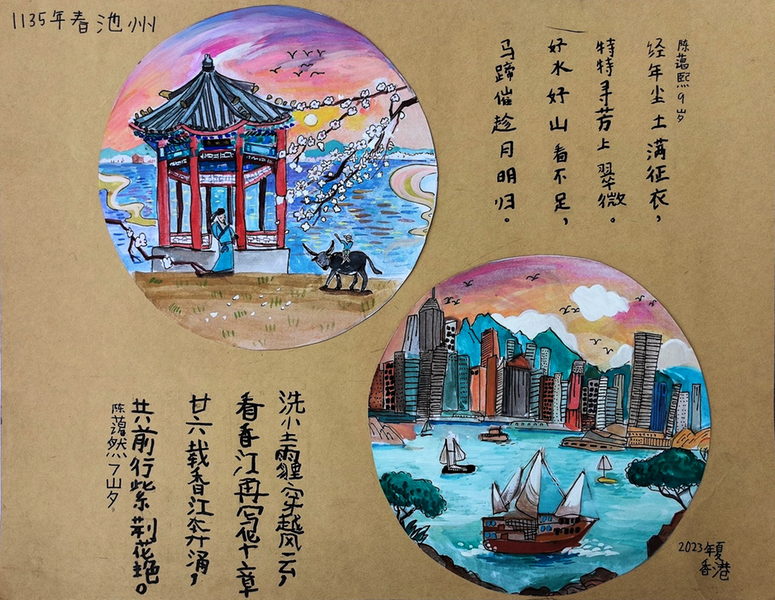 1135年春池州
陈蔼熙9岁
经年尘土满征衣，
特特寻芳上翠微。
好水好山看不足，
马蹄催趁月明归。
洗尘霾穿越云，
看香江再写华章
廿六载香江奔涌，
共前行紫荆花艳。
陈蔼然7岁。
2023年夏
香港